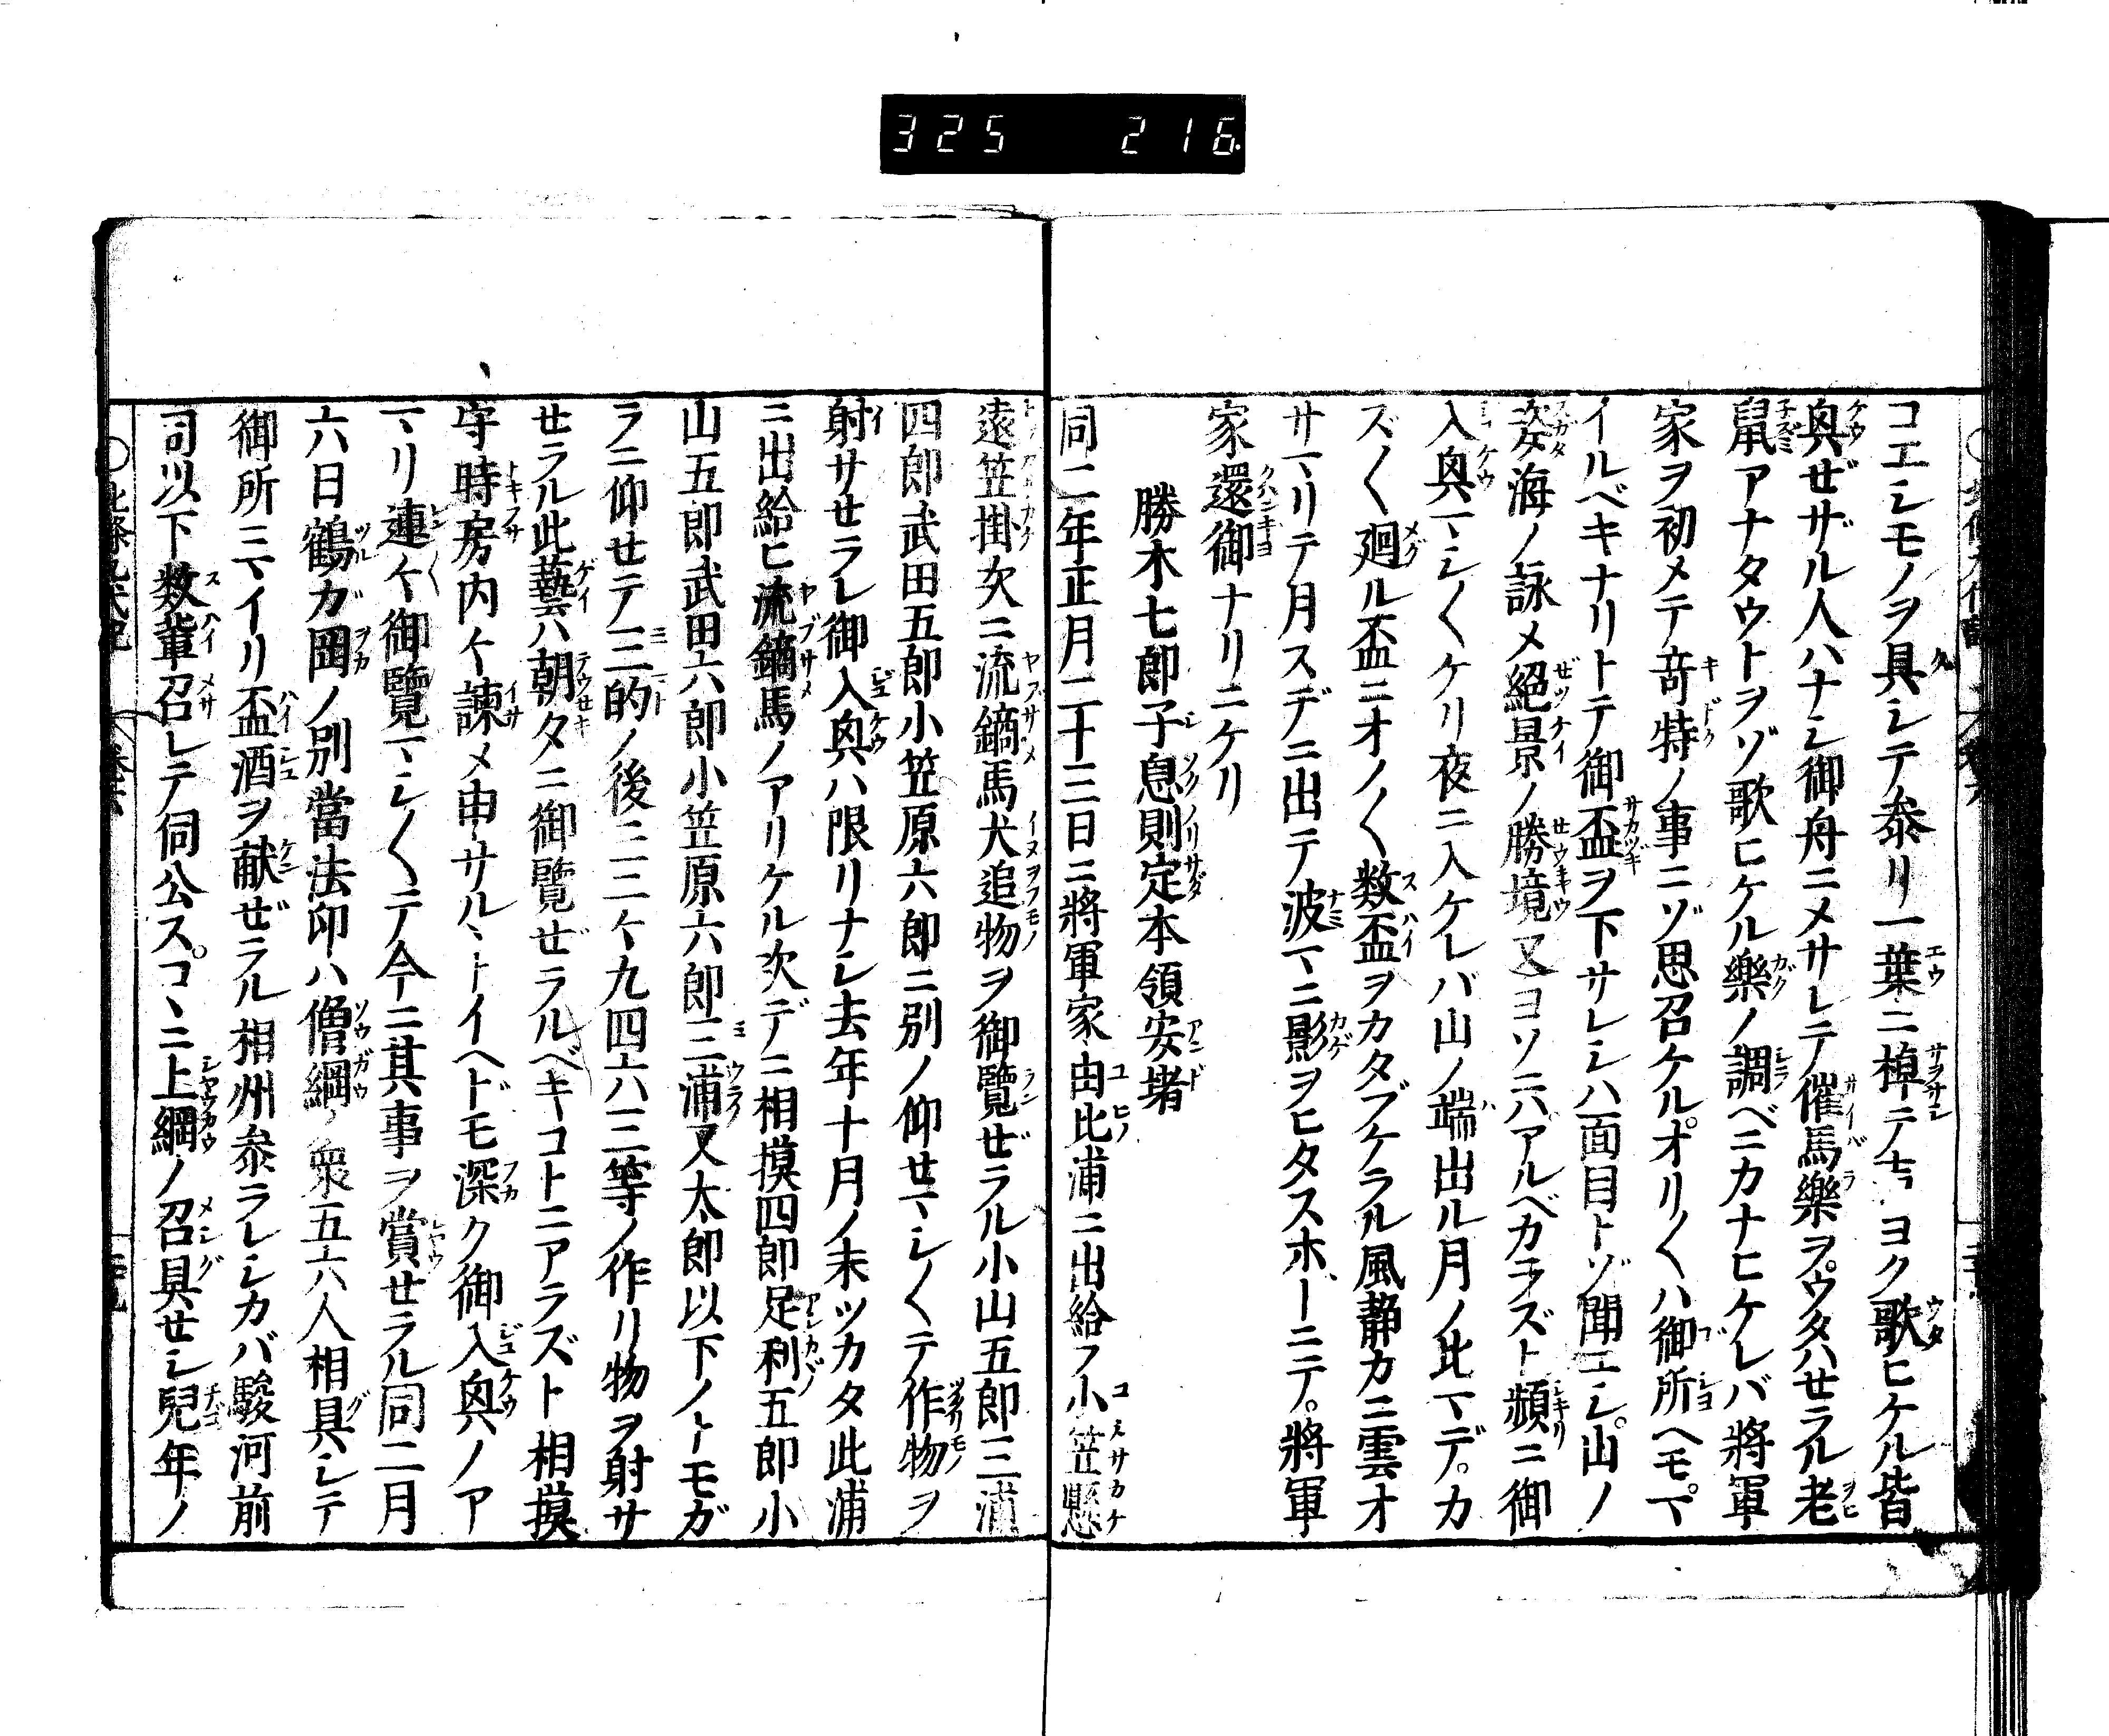 325 216
コエシモノヲ具シテ参リ一葉ニ棹テ ヨク歌ヒケル皆
興ゼザル人ハナシ御舟ニメサレテ催馬樂ヲウタハセラル老
鼠アナタウトヲゾ歌ヒケル樂ノ調ベニカナヒケレバ將軍
家ヲ初メテ竒特ノ事ニゾ思召ケルオリ〱ハ御所ヘモマ
イルベキナリトテ御盃ヲ下サレシハ面目トゾ聞エシ山ノ
姿海ノ詠メ絕景ノ勝境又ヨソニハアルベカラズト頻ニ御
入興マシ〱ケリ夜ニ入ケレバ山ノ端出ル月ノ比マデカ
ズ〱廻ル盃ニオノ〱数盃ヲカタブケラル風静カニ雲オ
サマリテ月スヂニ出テ波マニ影ヲヒタスホドニテ將軍
家還御ナリニケリ
勝木七郎子息則定本領安堵
同二年正月二十三日ニ將軍家由比浦ニ出給フ小笠懸
遠笠掛次ニ流鏑馬犬追物ヲ御覽ゼラル小山五郎三浦
四郎武田五郎小笠原六郎ニ別ノ仰セマシ〱テ作物ヲ
射サセラレ御入興ハ限リナシ去年十月ノ末ツカタ此浦
ニ出給ヒ流鏑馬ノアリケル次デニ相摸四郎足利五郎小
山五郎武田六郎小笠原六郎三浦又太郎以下ノトモガ
ラニ仰セテ三的ノ後ニ二ケ九四六三等ノ作リ物ヲ射サ
セラル此藝ハ朝タニ御覽ゼラルベキコトニアラズト相摸
守時房内々諌メ申サルヽトイヘドモ深ク御入興ノア
マリ連々御覽マシ〱テ今ニ其事ヲ賞セラル同二月
六日鶴ガ岡ノ別當法印ハ僧綱ノ衆五六人相具シテ
御所ニマイリ盃酒ヲ献ゼラル相州参ラレシカバ駿河前
司以下数輩召レテ伺公スコヽニ上綱ノ召具セシ兒年ノ
○北條九代記 巻六